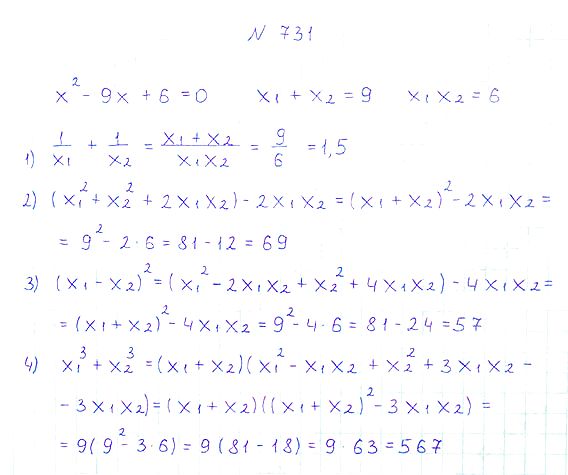 N 731
x² - 9x + 6 = 0   x₁ + x₂ = 9   x₁x₂ = 6
1) 1/x₁ + 1/x₂ = (x₁ + x₂)/(x₁x₂) = 9/6 = 1,5
2) (x₁² + x₂² + 2x₁x₂) - 2x₁x₂ = (x₁ + x₂)² - 2x₁x₂ =
= 9² - 2 · 6 = 81 - 12 = 69
3) (x₁ - x₂)² = (x₁² - 2x₁x₂ + x₂² + 4x₁x₂) - 4x₁x₂ =
= (x₁ + x₂)² - 4x₁x₂ = 9² - 4 · 6 = 81 - 24 = 57
4) x₁³ + x₂³ = (x₁ + x₂)(x₁² - x₁x₂ + x₂² + 3x₁x₂ -
- 3x₁x₂) = (x₁ + x₂)((x₁ + x₂)² - 3x₁x₂) =
= 9(9² - 3 · 6) = 9(81 - 18) = 9 · 63 = 567